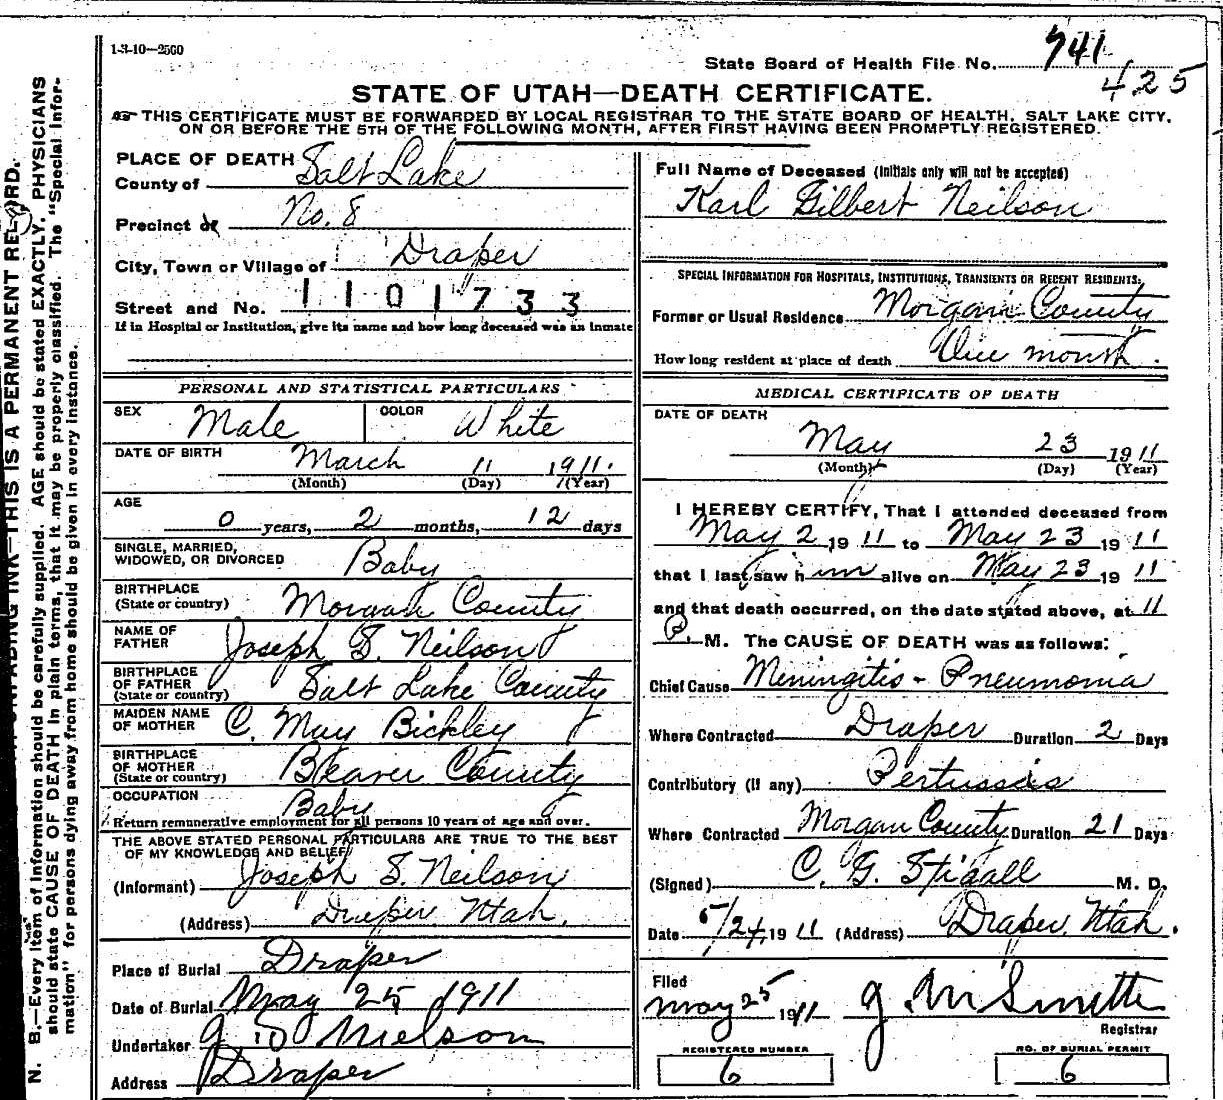 1-3-10—2500
State Board of Health File No. 741
425
STATE OF UTAH—DEATH CERTIFICATE.
THIS CERTIFICATE MUST BE FORWARDED BY LOCAL REGISTRAR TO THE STATE BOARD OF HEALTH, SALT LAKE CITY,
ON OR BEFORE THE 5TH OF THE FOLLOWING MONTH, AFTER FIRST HAVING BEEN PROMPTLY REGISTERED.
PLACE OF DEATH
County of Salt Lake
Precinct or No. 8
City, Town or Village of Draper
Street and No. 1101733
If in Hospital or Institution, give its name and how long deceased was an inmate
Full Name of Deceased (Initials only will not be accepted)
Karl Gilbert Neilson
SPECIAL INFORMATION FOR HOSPITALS, INSTITUTIONS, TRANSIENTS OR RECENT RESIDENTS:
Former or Usual Residence Morgan County
How long resident at place of death One month.
PERSONAL AND STATISTICAL PARTICULARS
SEX Male COLOR White
DATE OF BIRTH March 11 1911.
(Month) (Day) (Year)
AGE
0 years, 2 months, 12 days
SINGLE, MARRIED,
WIDOWED, OR DIVORCED Baby
BIRTHPLACE
(State or country) Morgan County
NAME OF
FATHER Joseph S. Neilson
BIRTHPLACE
OF FATHER
(State or country) Salt Lake County
MAIDEN NAME
OF MOTHER C. May Bickley
BIRTHPLACE
OF MOTHER
(State or country) Beaver County
OCCUPATION Baby
Return remunerative employment for all persons 10 years of age and over.
THE ABOVE STATED PERSONAL PARTICULARS ARE TRUE TO THE BEST
OF MY KNOWLEDGE AND BELIEF
(Informant) Joseph S. Neilson
(Address) Draper Utah.
Place of Burial Draper
Date of Burial May 25 1911
Undertaker J S Nielson
Address Draper
MEDICAL CERTIFICATE OF DEATH
DATE OF DEATH
May 23 1911
(Month) (Day) (Year)
I HEREBY CERTIFY, That I attended deceased from
May 2, 19 11 to May 23 19 11
that I last saw him alive on May 23 19 11
and that death occurred, on the date stated above, at 11
P. M. The CAUSE OF DEATH was as follows:
Chief Cause Meningitis - Pneumonia
Where Contracted Draper Duration 2 Days
Contributory (if any) Pertussis
Where Contracted Morgan County Duration 21 Days
(Signed) C. G. Stigall M. D.
Date 5/24, 19 11 (Address) Draper, Utah.
Filed
May 25 1911 J. M. Smith
Registrar
REGISTERED NUMBER
6
NO. OF BURIAL PERMIT
6
N. B.—Every item of information should be carefully supplied. AGE should be stated EXACTLY. PHYSICIANS
should state CAUSE OF DEATH in plain terms, that it may be properly classified. The "Special Infor-
mation" for persons dying away from home should be given in every instance.
INK—THIS IS A PERMANENT RECORD.